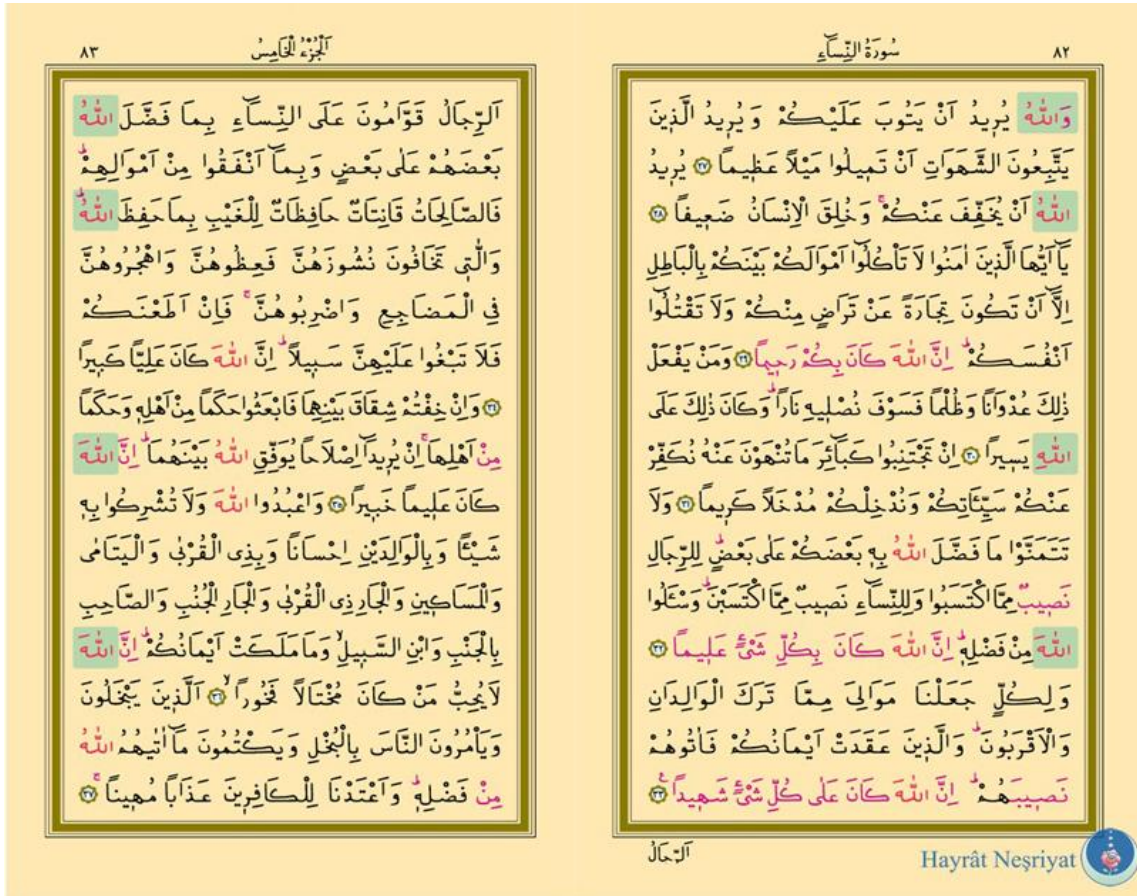 ٨٢
سُورَةُ النِّسَٓاءِ
وَاللّٰهُ يُرٖيدُ اَنْ يَتُوبَ عَلَيْكُمْ وَيُرٖيدُ الَّذٖينَ
يَتَّبِعُونَ الشَّهَوَاتِ اَنْ تَمٖيلُوا مَيْلًا عَظٖيماً ﴿٢٧﴾ يُرٖيدُ
اللّٰهُ اَنْ يُخَفِّفَ عَنْكُمْۚ وَخُلِقَ الْاِنْسَانُ ضَعٖيفاً ﴿٢٨﴾
يَٓا اَيُّهَا الَّذٖينَ اٰمَنُوا لَا تَأْكُلُٓوا اَمْوَالَكُمْ بَيْنَكُمْ بِالْبَاطِلِ
اِلَّٓا اَنْ تَكُونَ تِجَارَةً عَنْ تَرَاضٍ مِنْكُمْ وَلَا تَقْتُلُٓوا
اَنْفُسَكُمْۜ اِنَّ اللّٰهَ كَانَ بِكُمْ رَحٖيماً ﴿٢٩﴾ وَمَنْ يَفْعَلْ
ذٰلِكَ عُدْوَاناً وَظُلْماً فَسَوْفَ نُصْلٖيهِ نَاراًۜ وَكَانَ ذٰلِكَ عَلَى
اللّٰهِ يَسٖيراً ﴿٣٠﴾ اِنْ تَجْتَنِبُوا كَبَٓائِرَ مَا تُنْهَوْنَ عَنْهُ نُكَفِّرْ
عَنْكُمْ سَيِّئَاتِكُمْ وَنُدْخِلْكُمْ مُدْخَلاً كَرٖيماً ﴿٣١﴾ وَلَا
تَتَمَنَّوْا مَا فَضَّلَ اللّٰهُ بِهٖ بَعْضَكُمْ عَلٰى بَعْضٍۜ لِلرِّجَالِ
نَصٖيبٌ مِمَّا اكْتَسَبُوا وَلِلنِّسَٓاءِ نَصٖيبٌ مِمَّا اكْتَسَبْنَۜ وَسْـَٔلُوا
اللّٰهَ مِنْ فَضْلِهٖۜ اِنَّ اللّٰهَ كَانَ بِكُلِّ شَيْءٍ عَلٖيماً ﴿٣٢﴾
وَلِكُلٍّ جَعَلْنَا مَوَالِيَ مِمَّا تَرَكَ الْوَالِدَانِ
وَالْاَقْرَبُونَۜ وَالَّذٖينَ عَقَدَتْ اَيْمَانُكُمْ فَاٰتُوهُمْ
نَصٖيبَهُمْۜ اِنَّ اللّٰهَ كَانَ عَلٰى كُلِّ شَيْءٍ شَهٖيداًۚ ﴿٣٣﴾
اَلرِّجَالُ
Hayrât Neşriyat
٨٣
اَلْجُزْءُ الْخَامِسُ
اَلرِّجَالُ قَوَّامُونَ عَلَى النِّسَٓاءِ بِمَا فَضَّلَ اللّٰهُ
بَعْضَهُمْ عَلٰى بَعْضٍ وَبِمَٓا اَنْفَقُوا مِنْ اَمْوَالِهِمْۜ
فَالصَّالِحَاتُ قَانِتَاتٌ حَافِظَاتٌ لِلْغَيْبِ بِمَا حَفِظَ اللّٰهُۜ
وَالّٰتٖي تَخَافُونَ نُشُوزَهُنَّ فَعِظُوهُنَّ وَاهْجُرُوهُنَّ
فِي الْمَضَاجِعِ وَاضْرِبُوهُنَّۚ فَاِنْ اَطَعْنَكُمْ
فَلَا تَبْغُوا عَلَيْهِنَّ سَبٖيلاًۜ اِنَّ اللّٰهَ كَانَ عَلِيّاً كَبٖيراً
﴿٣٤﴾ وَاِنْ خِفْتُمْ شِقَاقَ بَيْنِهِمَا فَابْعَثُوا حَكَماً مِنْ اَهْلِهٖ وَحَكَماً
مِنْ اَهْلِهَاۚ اِنْ يُرٖيدَٓا اِصْلَاحاً يُوَفِّقِ اللّٰهُ بَيْنَهُمَاۜ اِنَّ اللّٰهَ
كَانَ عَلٖيماً خَبٖيراً ﴿٣٥﴾ وَاعْبُدُوا اللّٰهَ وَلَا تُشْرِكُوا بِهٖ
شَيْـٔاً وَبِالْوَالِدَيْنِ اِحْسَاناً وَبِذِي الْقُرْبٰى وَالْيَتَامٰى
وَالْمَسَاكٖينِ وَالْجَارِ ذِي الْقُرْبٰى وَالْجَارِ الْجُنُبِ وَالصَّاحِبِ
بِالْجَنْبِ وَابْنِ السَّبٖيلِۙ وَمَا مَلَكَتْ اَيْمَانُكُمْۜ اِنَّ اللّٰهَ
لَا يُحِبُّ مَنْ كَانَ مُخْتَالاً فَخُوراًۙ ﴿٣٦﴾ اَلَّذٖينَ يَبْخَلُونَ
وَيَأْمُرُونَ النَّاسَ بِالْبُخْلِ وَيَكْتُمُونَ مَٓا اٰتٰيهُمُ اللّٰهُ
مِنْ فَضْلِهٖۜ وَاَعْتَدْنَا لِلْكَافِرٖينَ عَذَاباً مُهٖيناًۚ ﴿٣٧﴾